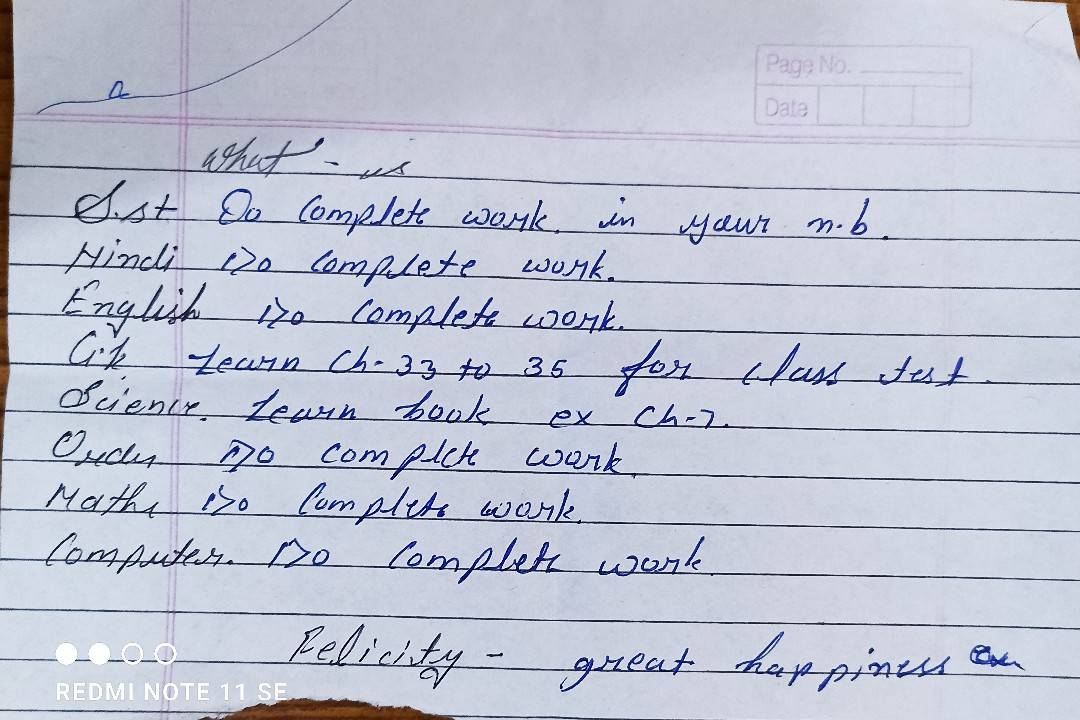 Page No.
Date
a
what - us
S.st Do Complete work. in your n.b.
Hindi Do Complete work.
English Do Complete work.
G.k Learn Ch-33 to 35 for class test.
Science. Learn book ex Ch-7.
Do complete work.
Maths Do Complete work.
Computer. Do Complete work
Felicity - great happiness
REDMI NOTE 11 SE